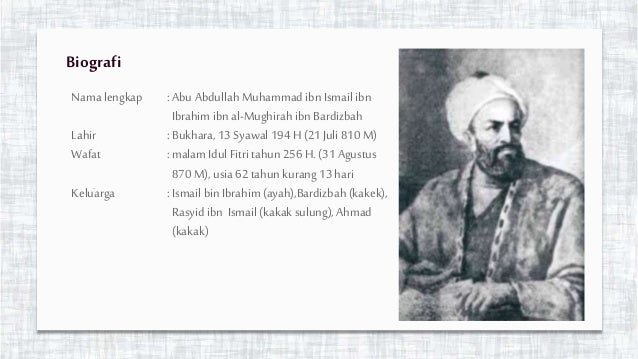 Biografi
Nama lengkap : Abu Abdullah Muhammad ibn Ismail ibn
Ibrahim ibn al-Mughirah ibn Bardizbah
Lahir : Bukhara, 13 Syawal 194 H (21 Juli 810 M)
Wafat : malam Idul Fitri tahun 256 H. (31 Agustus
870 M), usia 62 tahun kurang 13 hari
Keluarga : Ismail bin Ibrahim (ayah),Bardizbah (kakek),
Rasyid ibn Ismail (kakak sulung), Ahmad
(kakak)